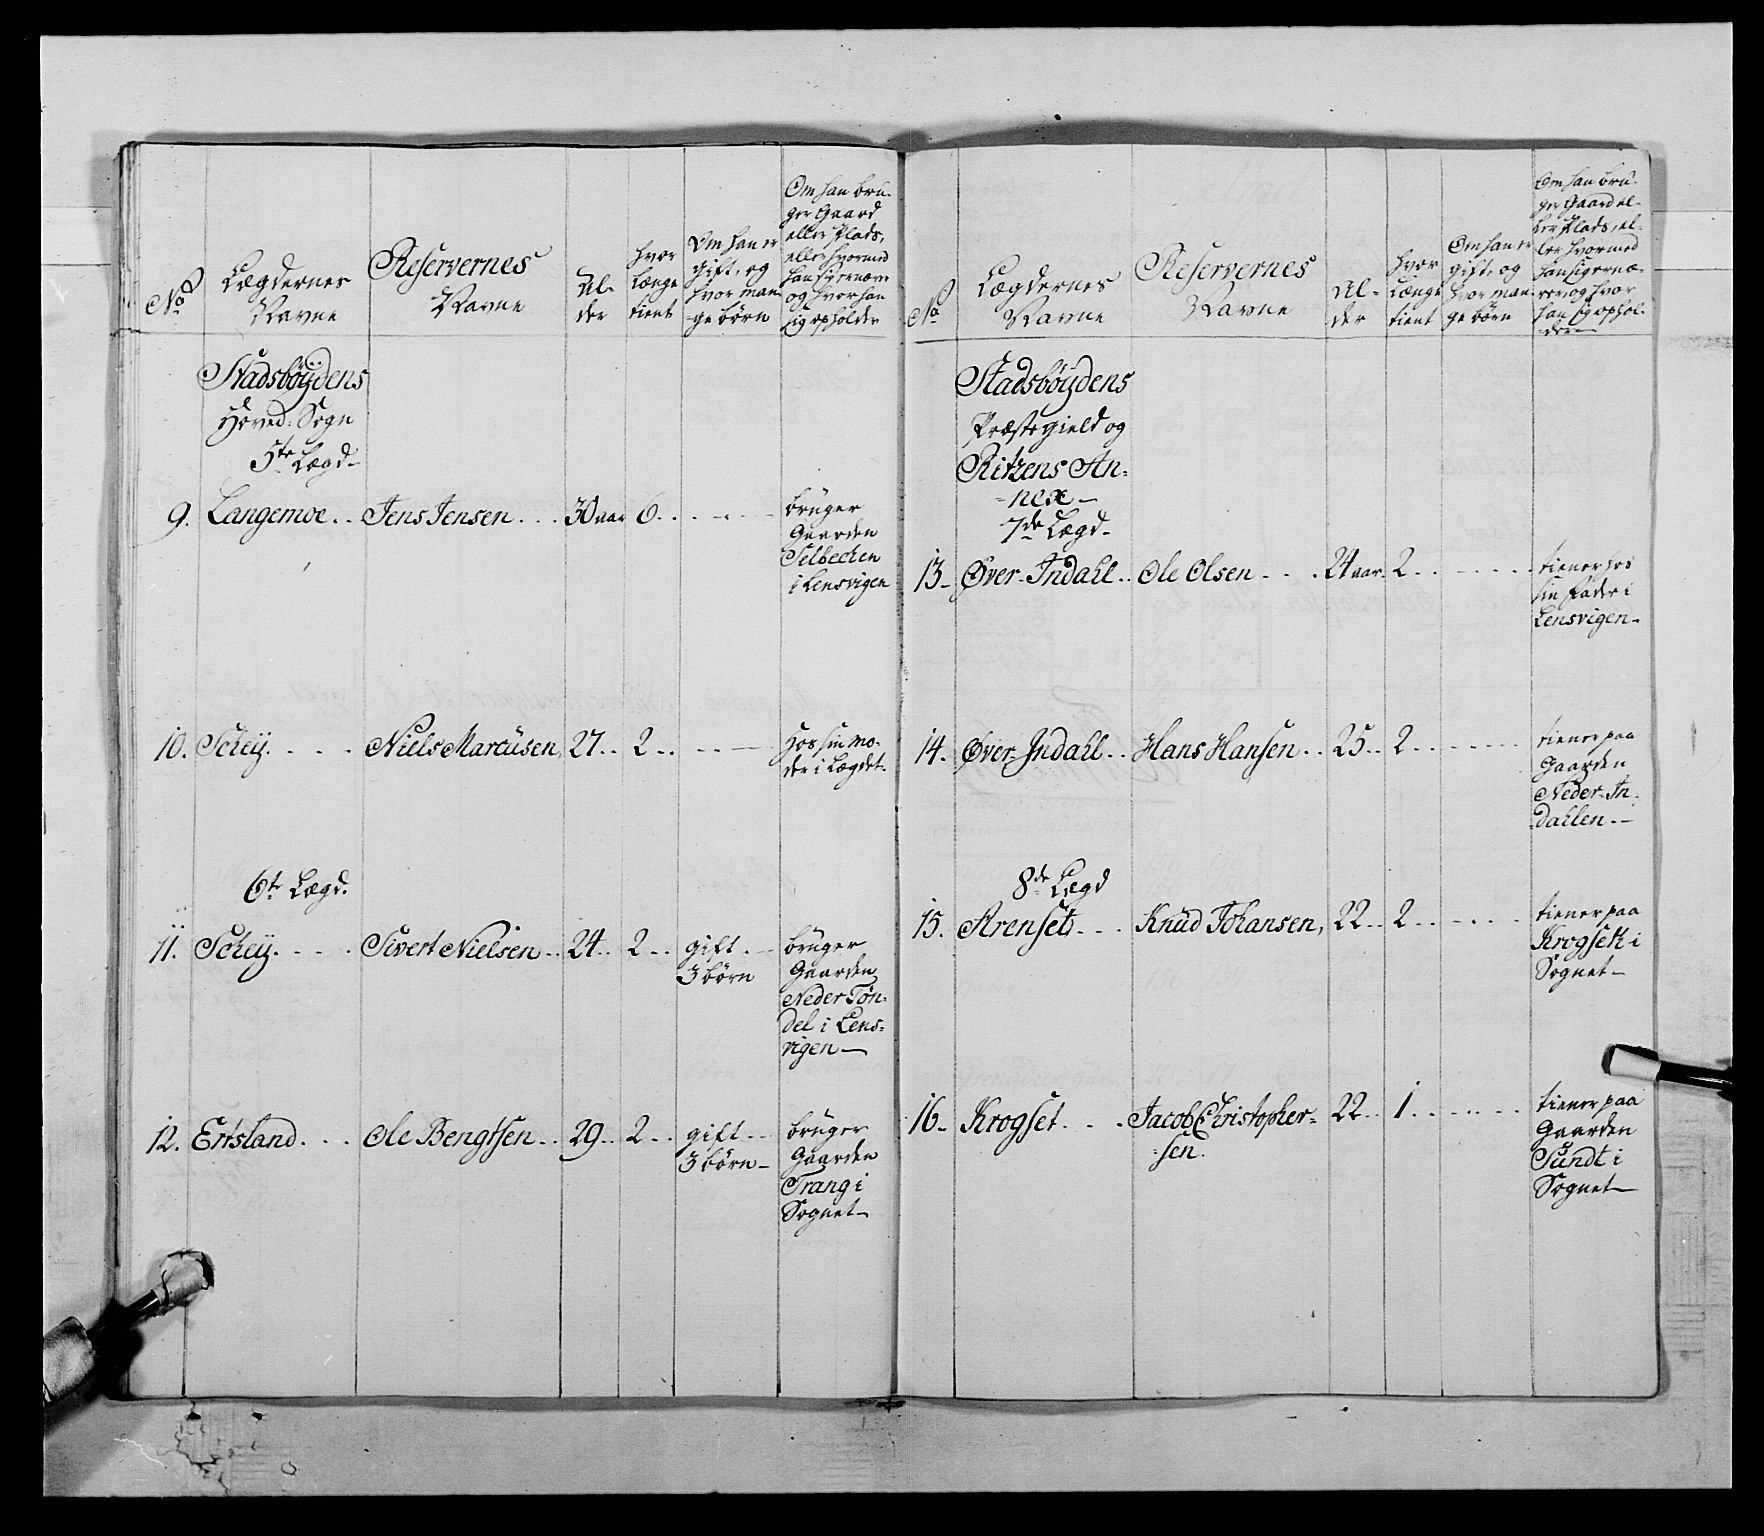 No
Lægdernes
Navne
Reservernes
Navne
Al-
der
hvor
Længe
tient
Om han er
gift, og
hvor man-
ge börn
Om han bru-
ger Gaard
eller Plads,
eller hvormed
han sig ernære
og hvor han
sig opholder
Stadsböÿdens
Hoved: Sogn
5te Lægd-
9. Langemoe .. Jens Jensen ... 30 aar 6. . - - - brüger
Gaarden
Selbechen
i Lensvigen
10. Scheÿ. . . . Niels Marcüsen, 27.. 2.. ..— Hos sin Mo-
der i Lægdet.
6te Lægd.
11. Scheÿ. . . . Sivert Nielsen.. 24.. 2.. gift.— brüger
3 börn Gaarden
Neder Tøn-
del i Lens-
vigen—
12. Ertsland. . . Ole Bengtsen.. 29.. 2.. gift.. brüger
3 börn— Gaarden
Trang i
Sognet—
No
Lægdernes
Navne
Reservernes
Navne
Al-
der
hvor
Længe
tient
Om han er
gift, og
hvor man-
ge börn
Om han brü-
ger Gaard el-
ler Plads, el-
ler hvormed
han sig ernæ-
rer, og hvor
han sig ophol-
der—
Stadsböÿdens
Præstegield og
Ritzens An-
=nex—
7de Lægd-
13- Øver-Indahl.. Ole Olsen. . . . 24 aar. 2. . - - . . tiener hos
sin Fader i
Lensvigen-
14. Øver-Indahl.. Hans Hansen.. 25.. 2. . - - - . tiener paa
Gaarden
Neder-In-
dahlen.—
8de Lægd
15. Arenset. . . Knud Johansen, 22.. 2. . - . . . tiener paa
Krogsett i
Sognet—
16- Krogset. . . . Jacob Christopher- 22.. 1. . - . . . tiener paa
=sen. Gaarden
Sundt i
Sognet—